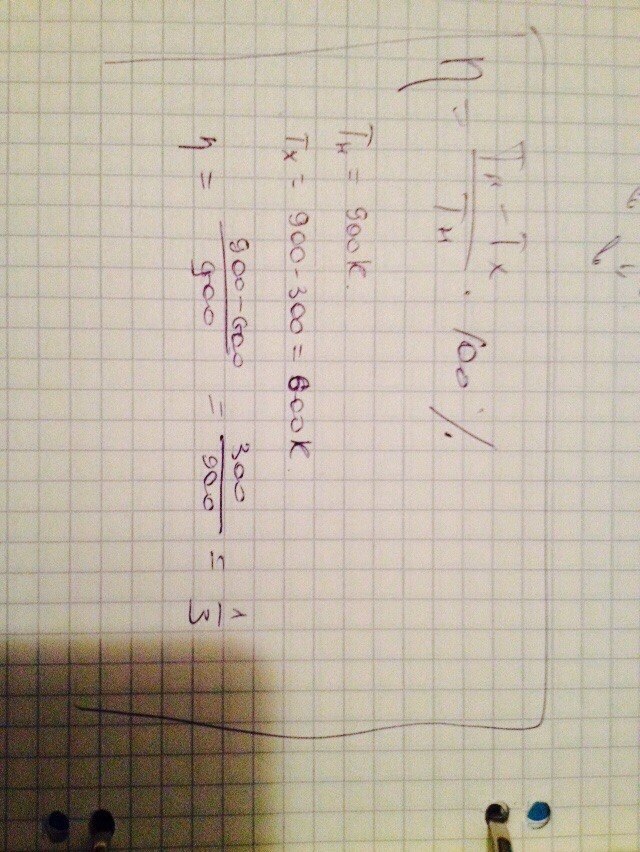 η = (Tн - Tх) / Tн · 100 %
Tн = 900K
Tх = 900-300 = 600K
η = 900-600 / 900 = 300 / 900 = 1 / 3